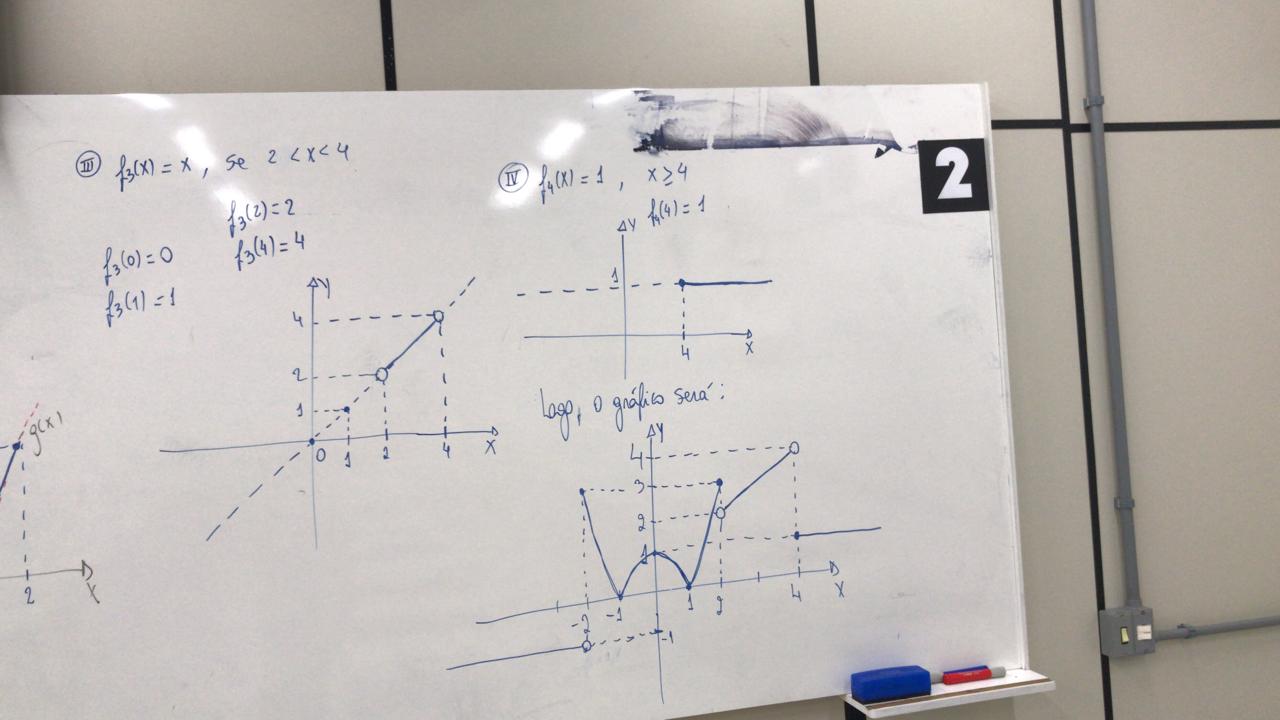 III f₃(x) = x , se 2 < x < 4
f₃(2) = 2
f₃(0) = 0
f₃(4) = 4
f₃(1) = 1
Y
4
2
1
0 1 2 4 X
IV f₄(x) = 1 , x ≥ 4
f₄(4) = 1
Y
1
4 X
Logo, o gráfico será:
Y
4
3
2
1
-2 -1 1 2 4 X
-1
g(x)
2 X
2